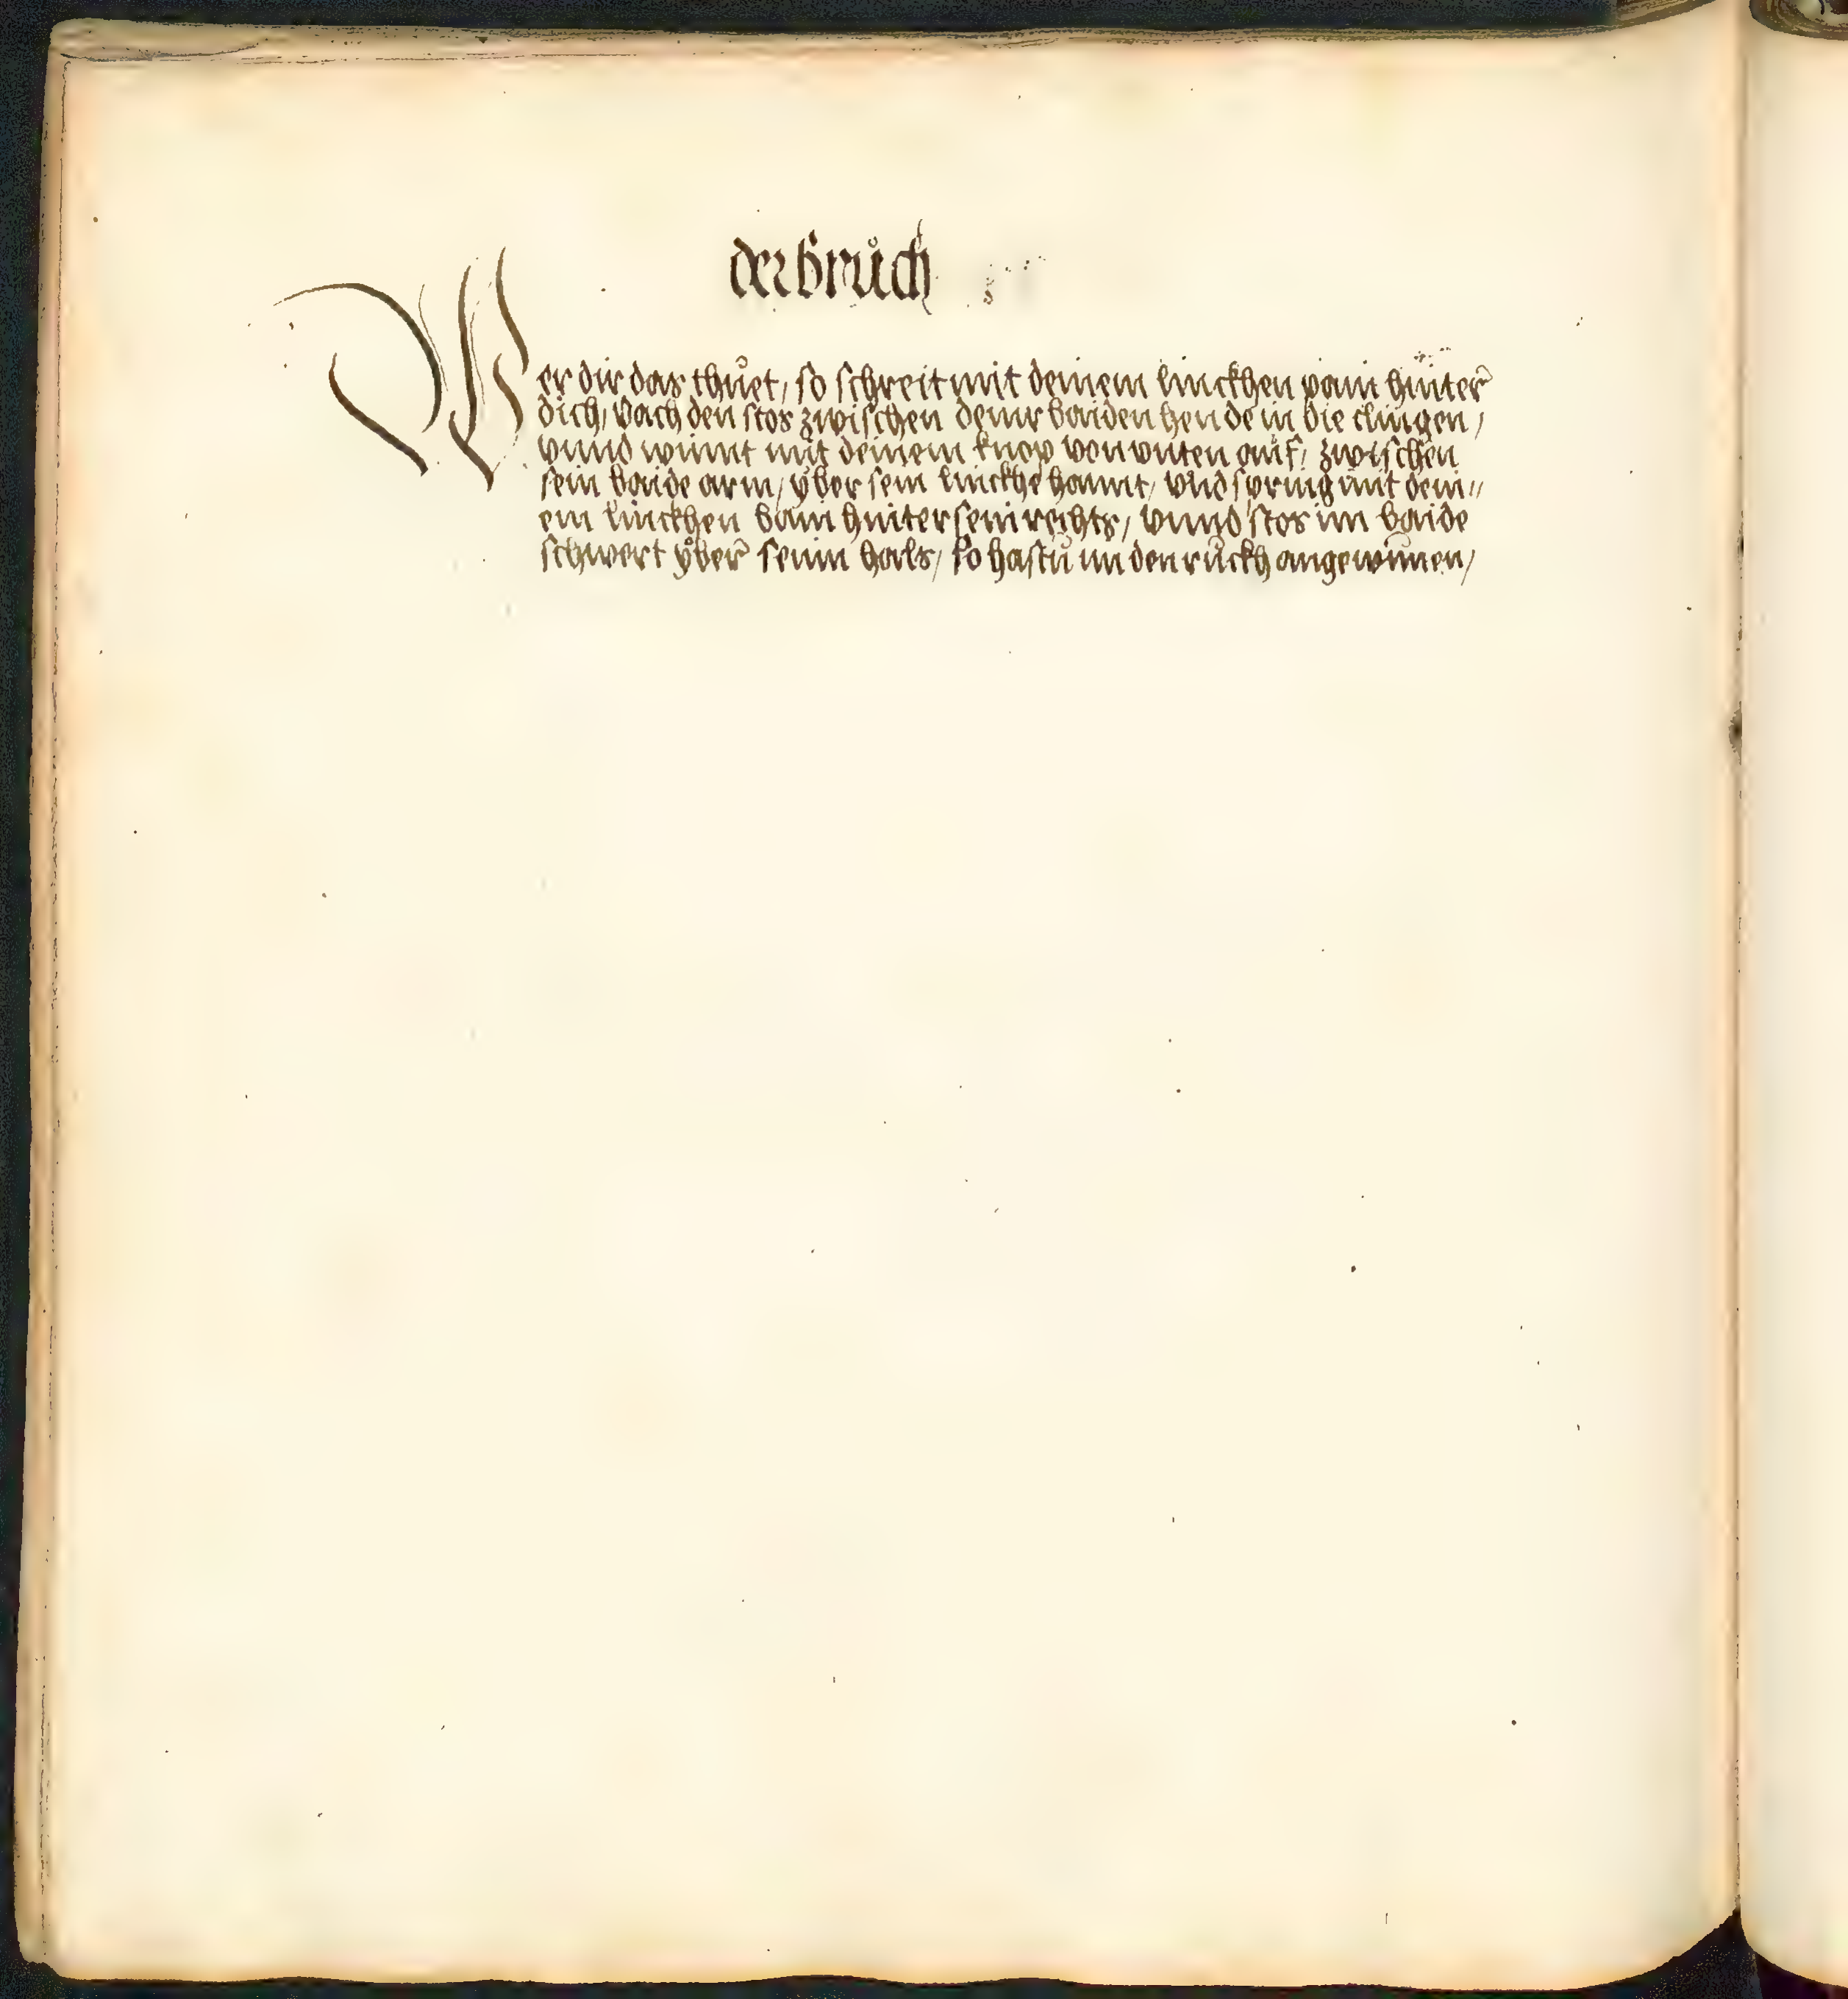 der bruͦch
Wer dir das thuͦet, / so schreit mit deinem linckhen pain hinter
dich, / vach den stos zwischen deinr baiden hende in die clingen, /
vnnd winnt mit deinem knop von vnten auf, / zwischen
sein baide arm, / yͤber sein linckhe hannt, / vnd spring mit dein⸗
em linckhen bain hinter sein rechts, / vnnd stos im baide
schwert yͤber seinn hals, / so hastu im den ruckh angewunnen, /